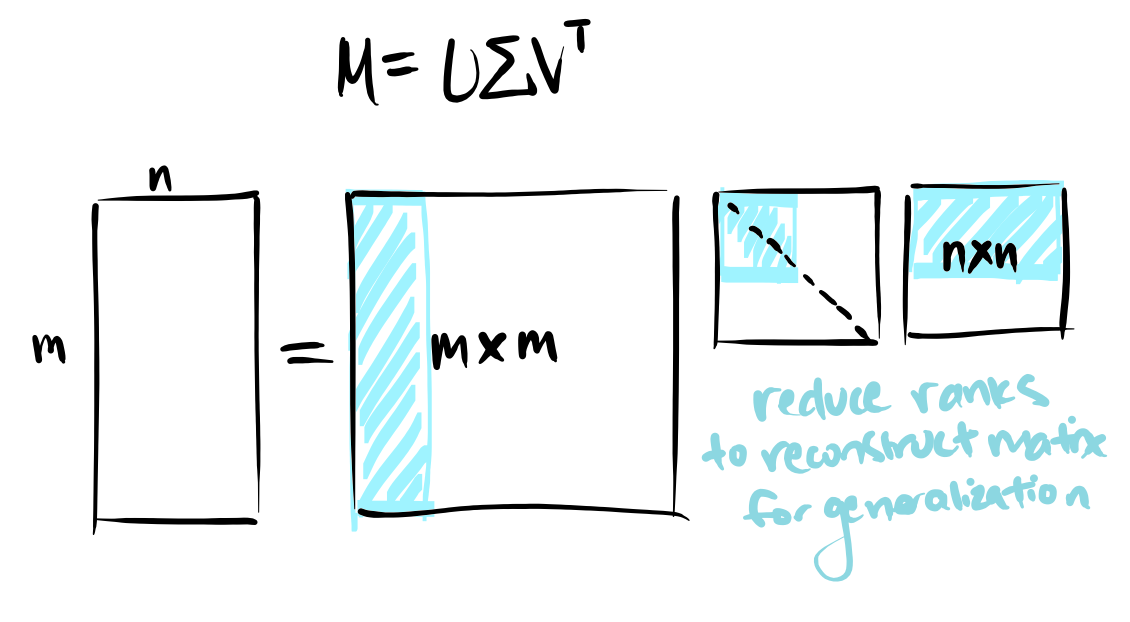 M= UΣVᵀ
n
m
=
m x m
n x n
reduce ranks
to reconstruct matrix
for generalization